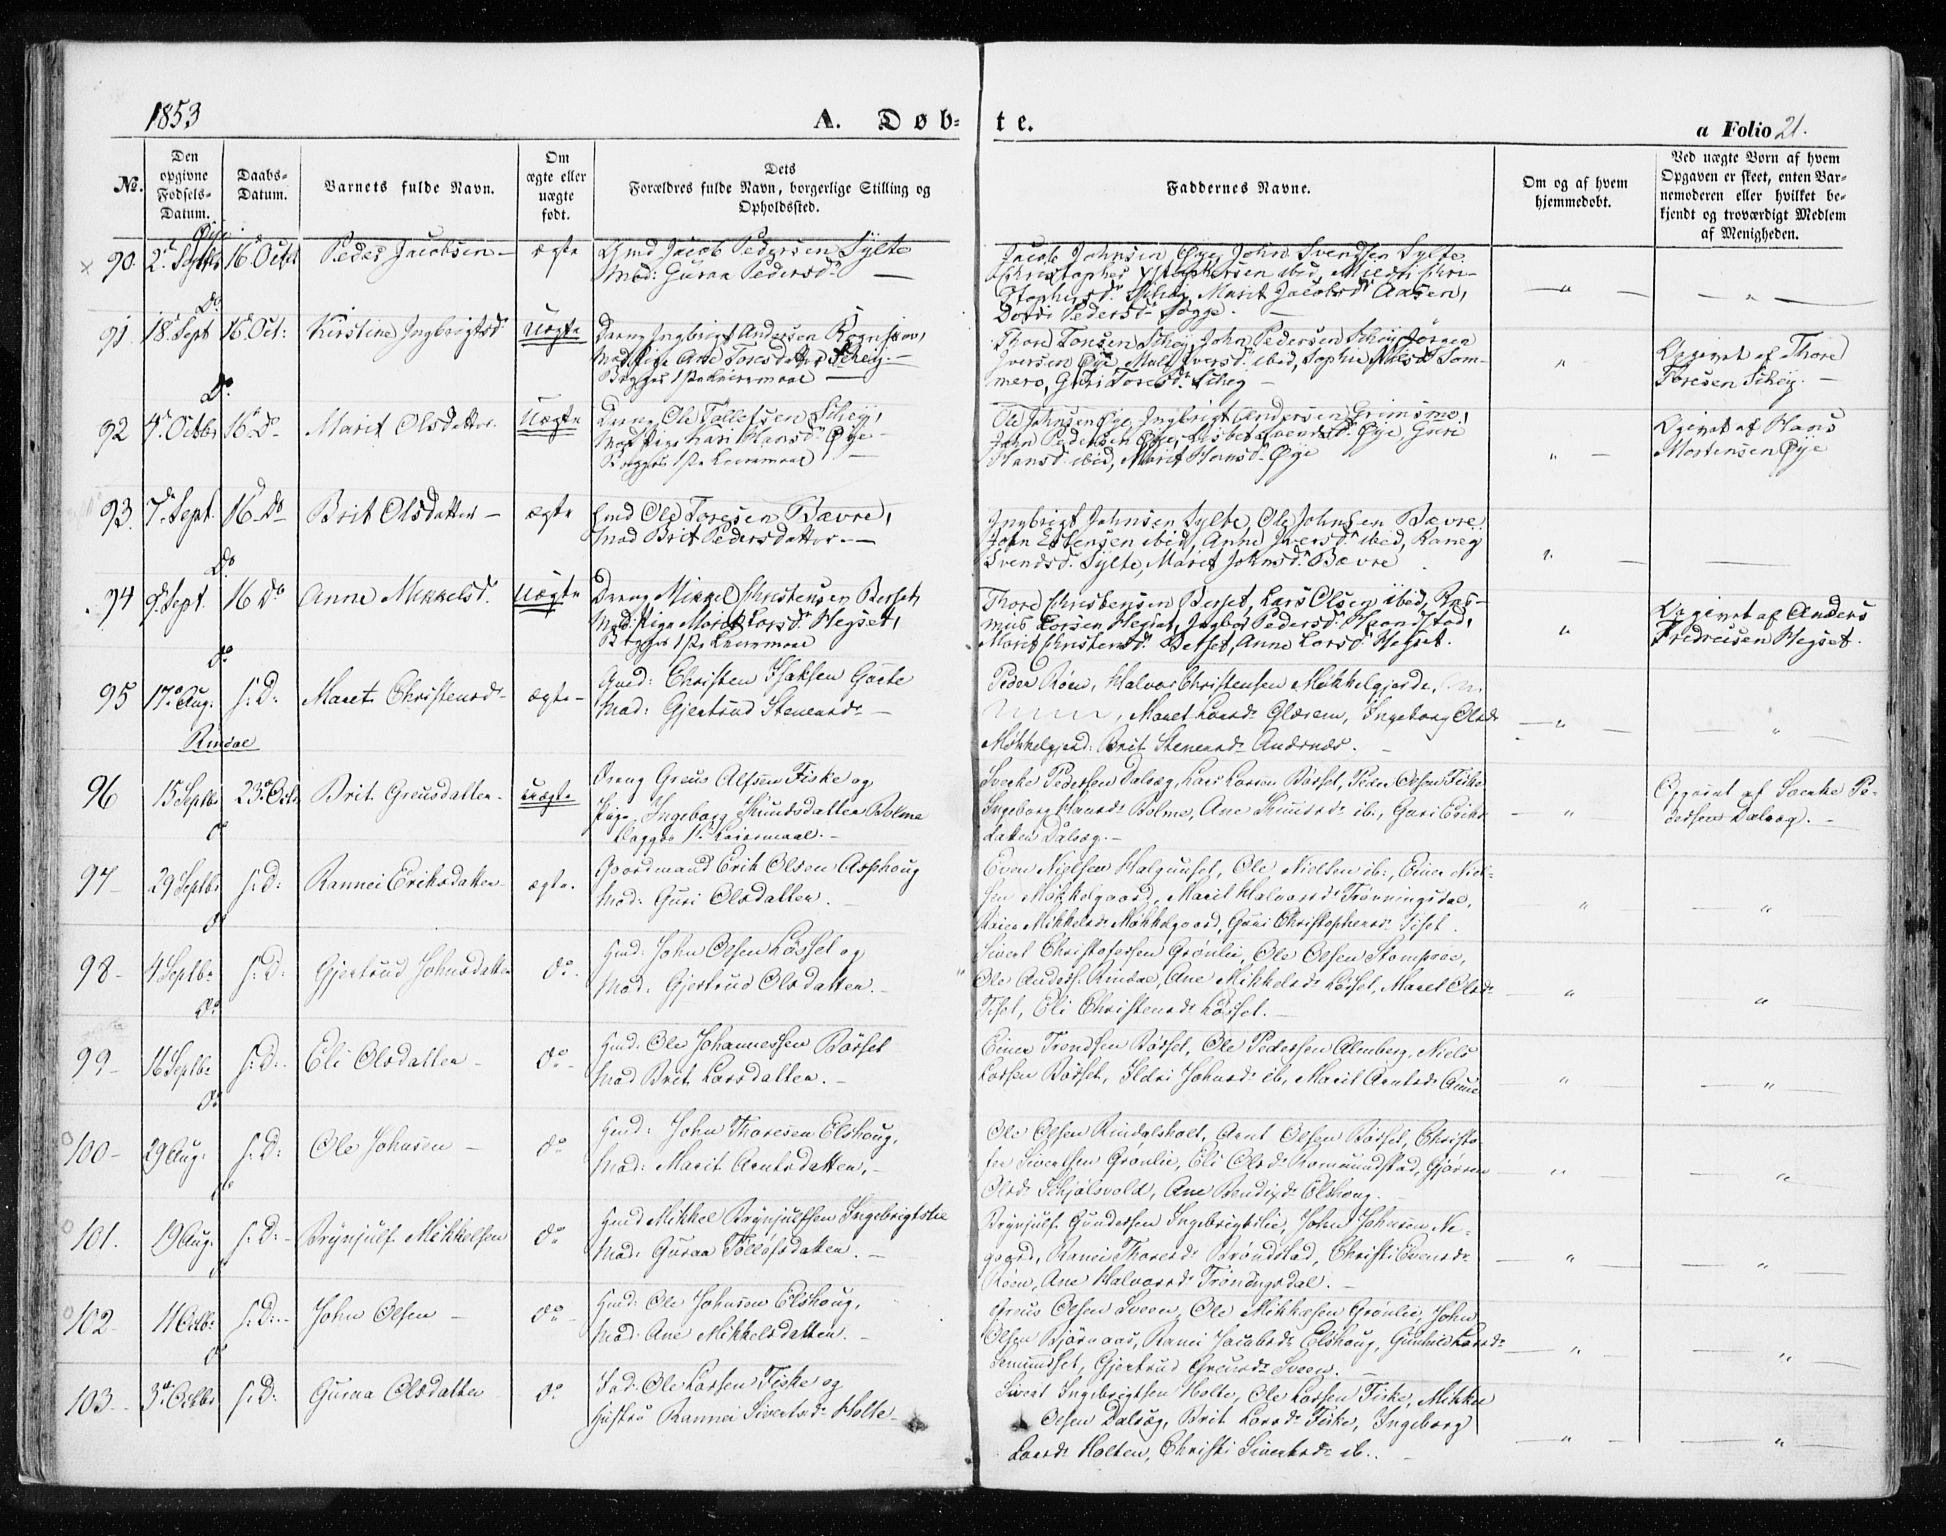 1853
A. Døb-
te.
a Folio 21.
No.
Den opgivne Fødsels-Datum.
Daabs-Datum.
Barnets fulde Navn.
Om ægte eller uægte født.
Dets Forældres fulde Navn, borgerlige Stilling og Opholdssted.
Faddernes Navne.
Om og af hvem hjemmedøbt.
Ved uægte Børn af hvem Opgaven er skeet, enten Barnemoderen eller hvilket bekjendt og troværdigt Medlem af Menigheden.
Øye
90. 2. Septbr 16 Octbr Peder Jacobsen - ægte Gmd Jacob Pedersen Sylte
Mod: Guraa Pedersd. -
Jacob Johnsen Øye, John Svendsen Sylte
ibid,
Marit Jacobsd Aasen,
Pedersd.
Do
91 18. Sept 16 Oct: Kirstine Ingbrigtsd Uægte Dreng Ingbrigt Andersen
Pige Ane Toresdatter Schei. -
Begges 1ste Leiermaal -
Thore Tonsen Schei, John Pedersen Schei, Jörgen
Iversen Øye, Iversd. ibid, Sophie Nilsd Som-
mero, Guri Toresd. -
Opgivet af Thore
Toresen Schei. -
Do
92 4. Octbr 16 Do Marit Olsdatter. Uægte Dreng Ole Tollefsen Schei,
Pige Kari Hansd. Øye -
Begges 1ste Leiermaal -
Ole Johnsen Øye, Ingbrigt Andersen Grimsmo,
John Pedersen Øye, Øye Guri
Hansd. ibid, Marit Hansd. Øye
Opgivet af Hans
Mortensen Øye
93. 7. Sept. 16 Do Brit Olsdatter - ægte Gmd Ole Toresen Bævre,
Mod Brit Pedersdatter. -
Ingbrigt Johnsen Sylte, Ole Johnsen Bævre
John Estensen ibid, Anne Iversd. ibid, Raneg
Svendsd. Sylte, Marit Johnsd. Bævre
Do
94 9. Sept. 16 Do Anne Mikkelsd. Uægte Dreng Mikkel Christensen Berset,
Pige Marit Larsd. Hegset,
Begges 1ste Leiermaal
Thore Christensen Berset, Lars Olsen ibid, Ras-
mus Larsen Hegset, Ingbor Pedersd.
Marit Christensd. Berset, Anne Larsd. Hegset.
Opgivet af Anders
Hegset.
Do
95 17. Aug. s: D: Maret Christensd. ægte - Gmd: Christen Isaksen Garte
Mod: Gjertrud Stenersd. -
Peder Røen, Halvor Christensen Møkkelgjerde,
Maret Larsd. Glærem, Ingeborg Olsd.
Møkkelgjerd: Brit Stenersd. Andsnæs. -
Rindal
96 15 Septbr 23. Octbr Brit Greusdatter. Uægte Dreng Greus Alfsen Fiske og
Pige Ingeborg Knudsdatter Bolme
Begges 1ste Leiermaal. -
Sverke Pedersen Dalsæg, Lars Larsen Børset, Peder Olsen Fiske
Ingeborg Hansd. Bolme, Ane Knudsd. ib., Guri Eriks-
datter Dalsæg. -
Opgivet af Sverke Pe-
dersen Dalsæg. -
Do
97 - 29 Septbr s: D: Rannei Eriksdatter ægte. Gaardmand Erik Olsen Asphoug
Mod: Guri Olsdatter. -
Even Nielsen Halgunset, Ole Nielsen ib:, Einer Niel-
sen Møkkelgaard, Marit Halvorsd. Trønningsdal,
Mikkelsd. Møkkelgaard, Guri Christophersd. Tiset.
Do
98 - 4 Septbr s: D: Gjertrud Johnsdatter do - Gmd: John Olsen Løsset og
Mod: Gjertrud Olsdatter. -
Sivert Christofersen Grønlie, Ole Olsen Stomproe,
Ole Anders. Rindal, Ane Mikkelsd. Løsset, Maret Olsd.
Tiset, Eli Christensd. Løsset. -
Do
99 - 16 Septbr s: D: - Eli Olsdatter - do - Gmd: Ole Johannessen Børset
Mod Brit Larsdatter. -
Einer Trondsen Børset, Ole Pedersen Almberg, Niels
Larsen Børset, Ildri Johnsd. ib, Marit Arntsd. Aune
Do
100 - 29 Aug: s: D: Ole Johnsen - do Gmd: John Thoresen Elshoug,
Mod: Marit Arntsdatter, -
Ole Olsen Rindalsholt, Arnt Olsen Børset, Christo-
fer Sivertsen Grønlie, Eli Olsd. Romundstad, Gjøren
Olsd. Schjølsvold, Ane Bendixd. Elshoug. -
Do
101. 19 Aug: s: D: - Brynjulf Mikkelsen do Gmd Mikkel Brynjulfsen Ingebrigtslie
Mod: Guraa Tølløfsdatter. -
Brynjulf Gundersen Ingebrigtslie, John Johnsen Ne-
gaard, Rannei Thoresd. Brøndstad, Christi Evensd.
Røen, Ane Halvorsd. Trøndngsdal. -
102 - 11 Octbr s: D: - John Olsen - do - Gmd: Ole Johnsen Elshoug,
Mod: Ane Mikkelsdatter. -
Greus Olsen Sveen, Ole Mikkelsen Grønlie, John
Olsen Bjørnaas, Ranei Jacobsd. Elshoug, Gunhild Larsd.
Romundset, Gjertrud Greusd. Sveen. -
Do
103 - 3. Octbr s: D: Guraa Olsdatter do Ind: Ole Larsen Fiske og
Hustru Rannei Sivertsd. Holte -
Sivert Ingebrigtsen Holte, Ole Larsen Fiske, Mikkel
Olsen Dalsæg, Brit Larsd. Fiske, Ingeborg
Larsd. Holten, Christi Sivertsd. ib. -